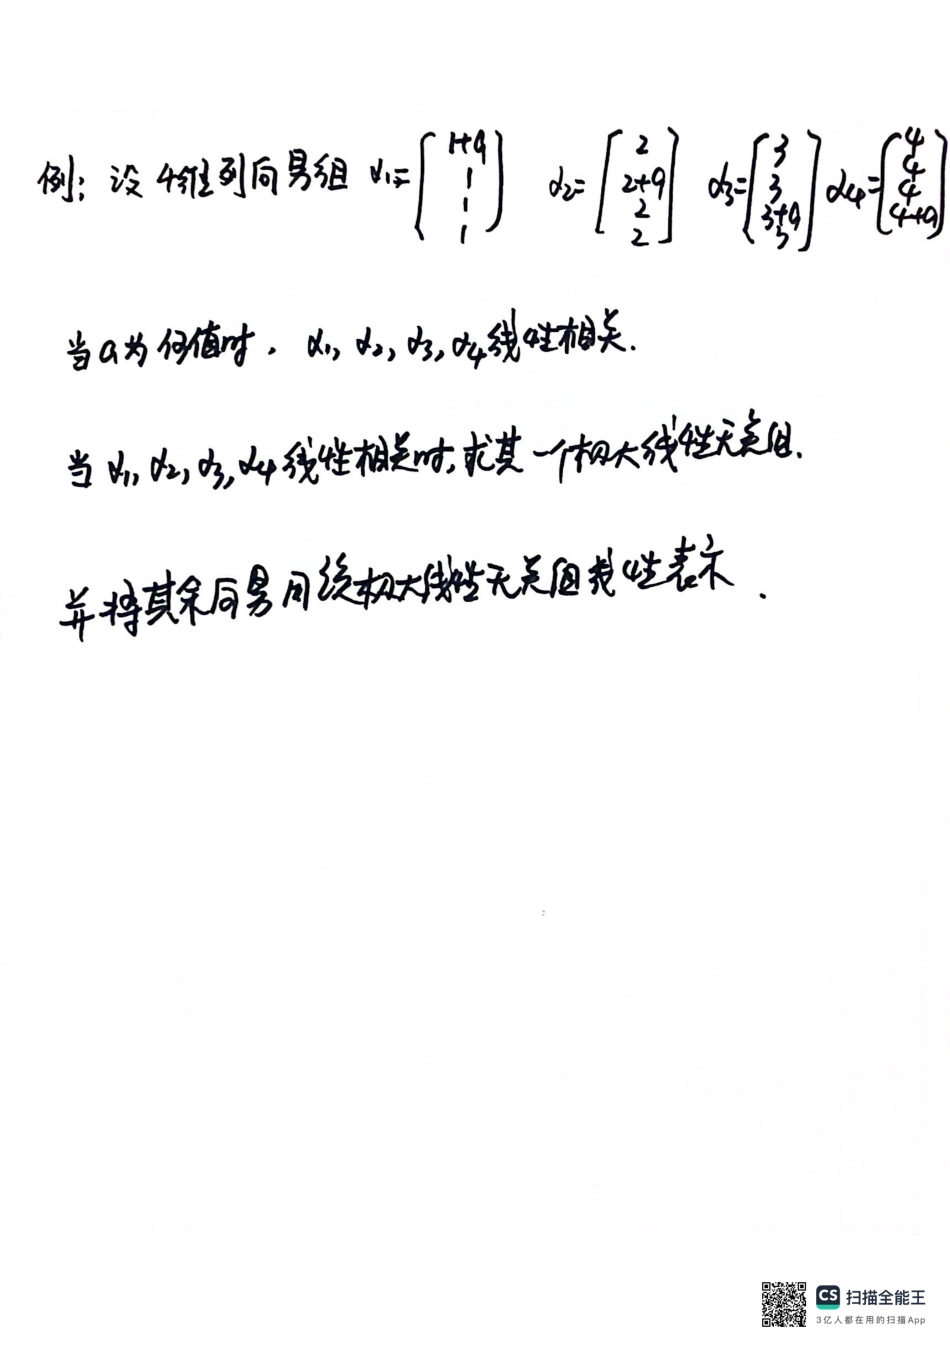 例：设4维列向量组 α₁=[1+a 1 1 1] α₂=[2 2+a 2 2] α₃=[3 3 3+a 3] α₄=[4 4 4 4+a]
当a为何值时，α₁, α₂, α₃, α₄线性相关.
当α₁, α₂, α₃, α₄线性相关时,求其一个极大线性无关组.
并将其余向量用该极大线性无关组线性表示.
CS 扫描全能王
3亿人都在用的扫描App